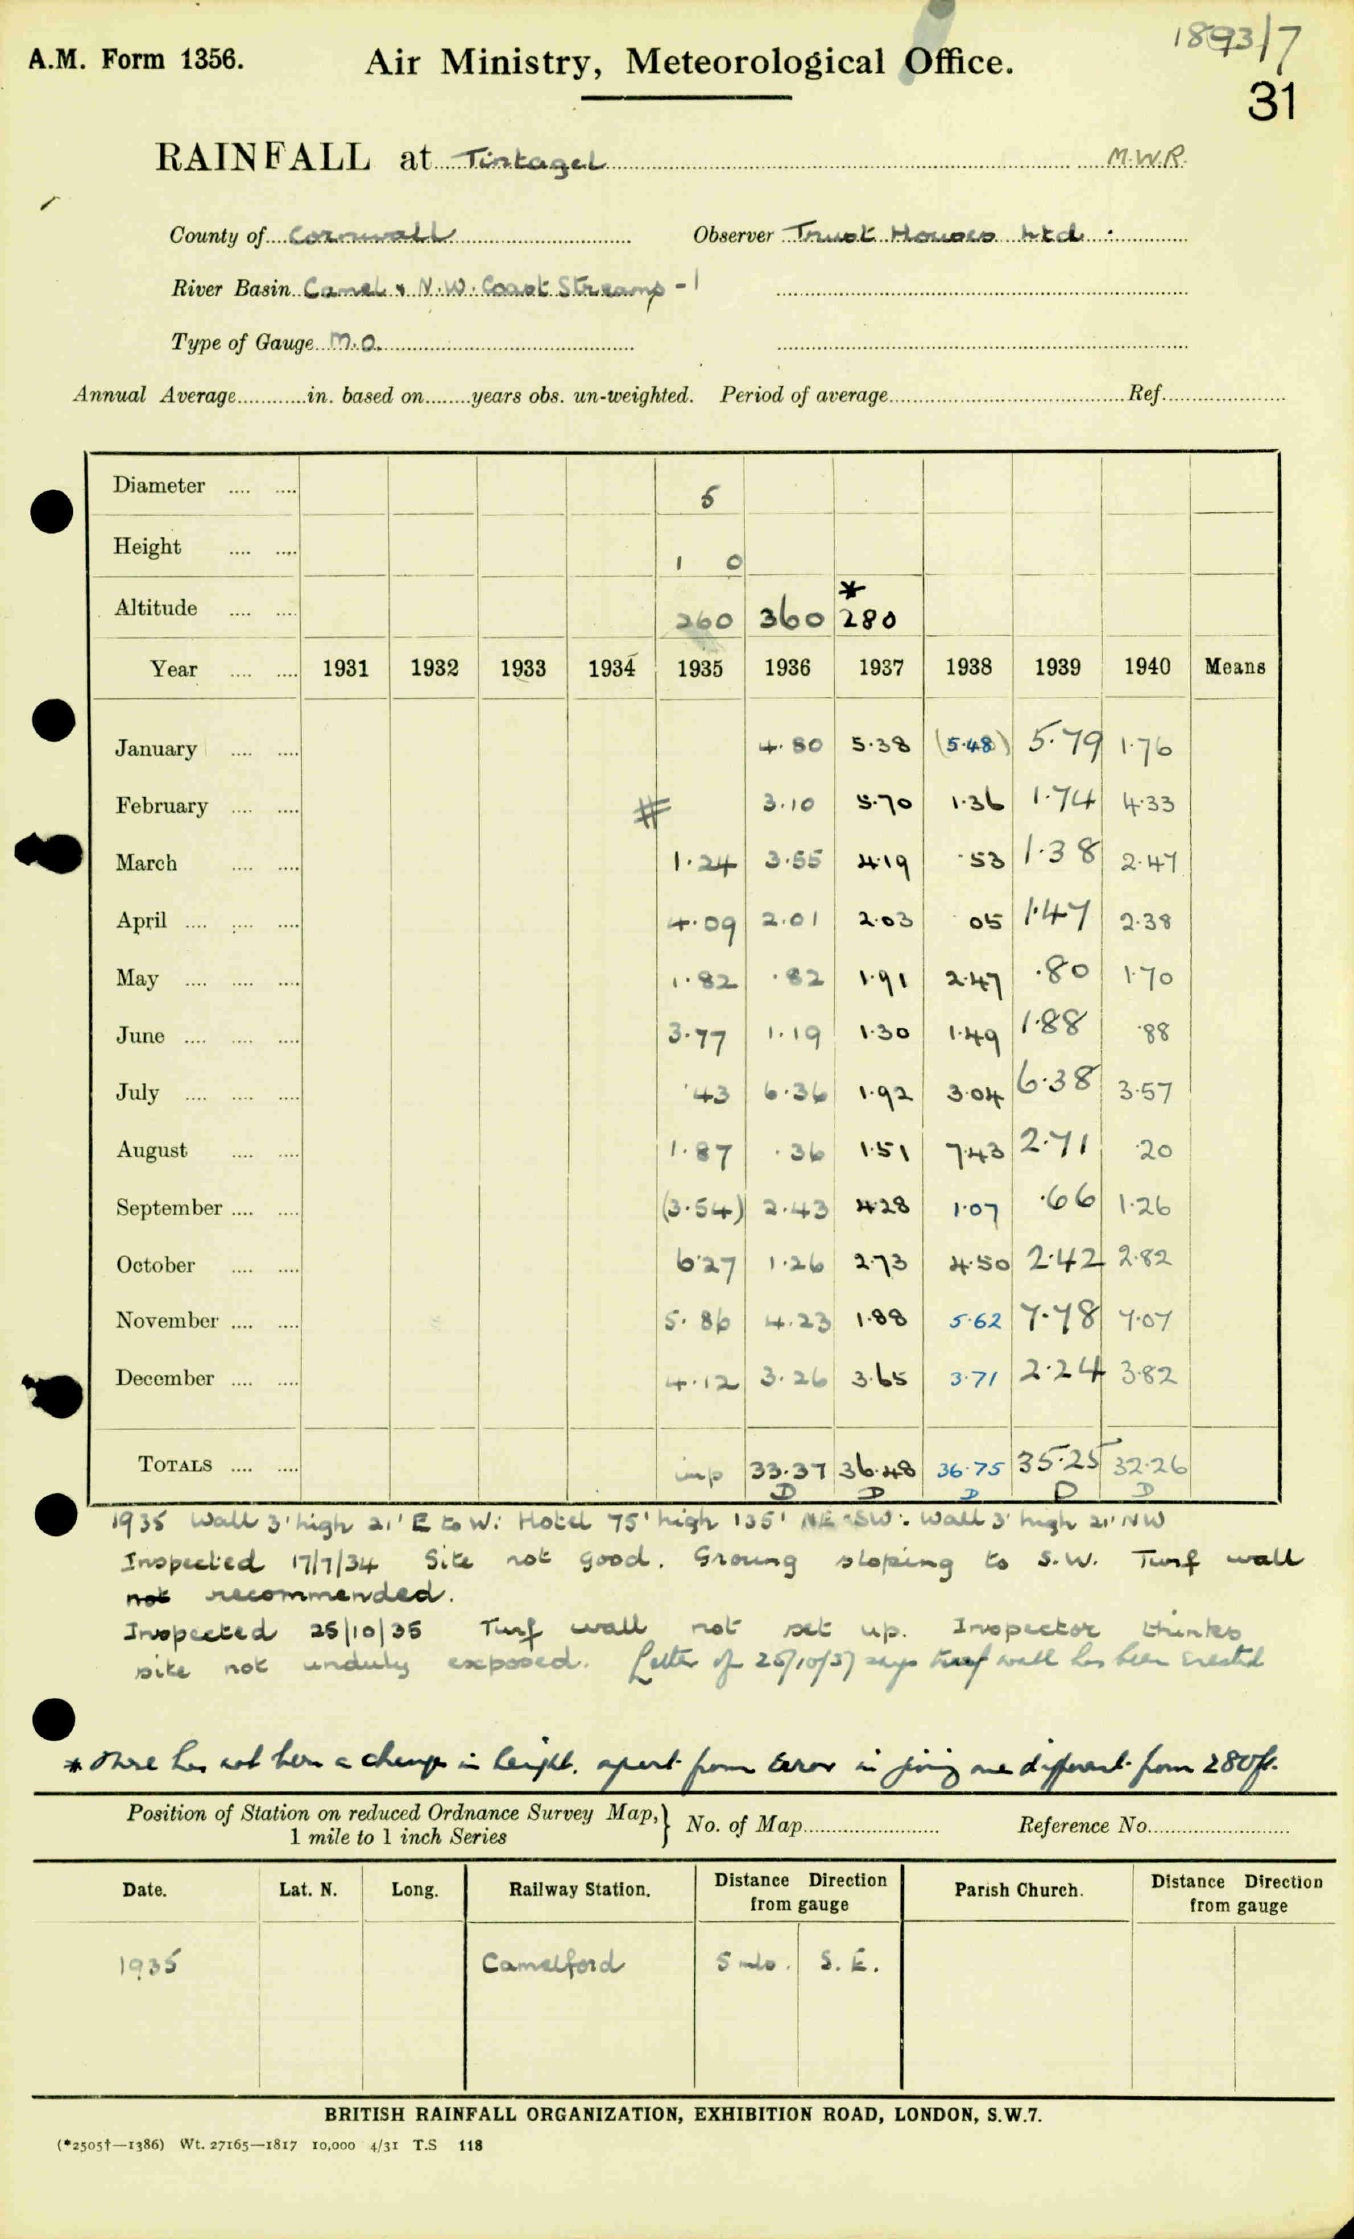 1893/7
A.M. Form 1356. Air Ministry, Meteorological Office.
31
RAINFALL at Tintagel M.W.R.
County of Cornwall Observer Trust Houses Ltd.
River Basin Camel & N.W. Coast Streams - 1
Type of Gauge M.O.
Annual Average in. based on years obs. un-weighted. Period of average Ref.
Diameter 5
Height 1 0
*
Altitude 260 360 280
Year 1931 1932 1933 1934 1935 1936 1937 1938 1939 1940 Means
January 4.80 5.38 (5.48) 5.79 1.76
February # 3.10 5.70 1.36 1.74 4.33
March 1.24 3.55 4.19 .53 1.38 2.47
April 4.09 2.01 2.03 05 1.47 2.38
May 1.82 .82 1.91 2.47 .80 1.70
June 3.77 1.19 1.30 1.49 1.88 .88
July .43 6.36 1.92 3.04 6.38 3.57
August 1.87 .36 1.51 7.43 2.71 .20
September (3.54) 2.43 4.28 1.07 .66 1.26
October 6.27 1.26 2.73 4.50 2.42 2.82
November 5.86 4.23 1.88 5.62 7.78 7.07
December 4.12 3.26 3.65 3.71 2.24 3.82
TOTALS imp 33.37 36.48 36.75 35.25 32.26
D D D D D
1935 Wall 3' high 21' E to W: Hotel 75' high 135' NE-SW: Wall 3' high 21' NW
Inspected 17/7/34 Site not good. Groung sloping to S.W. Turf wall
not recommended.
Inspected 25/10/35 Turf wall not set up. Inspector thinks
site not unduly exposed. Letter of 25/10/37 says turf wall has been erected
* There has not been a change in height, apart from error in giving one different from 280ft.
Position of Station on reduced Ordnance Survey Map, } No. of Map Reference No.
1 mile to 1 inch Series
Date. Lat. N. Long. Railway Station. Distance Direction from gauge Parish Church. Distance Direction from gauge
1935 Camelford 5 mls. S.E.
BRITISH RAINFALL ORGANIZATION, EXHIBITION ROAD, LONDON, S.W.7.
(*2505†—1386) Wt. 27165—1817 10,000 4/31 T.S 118